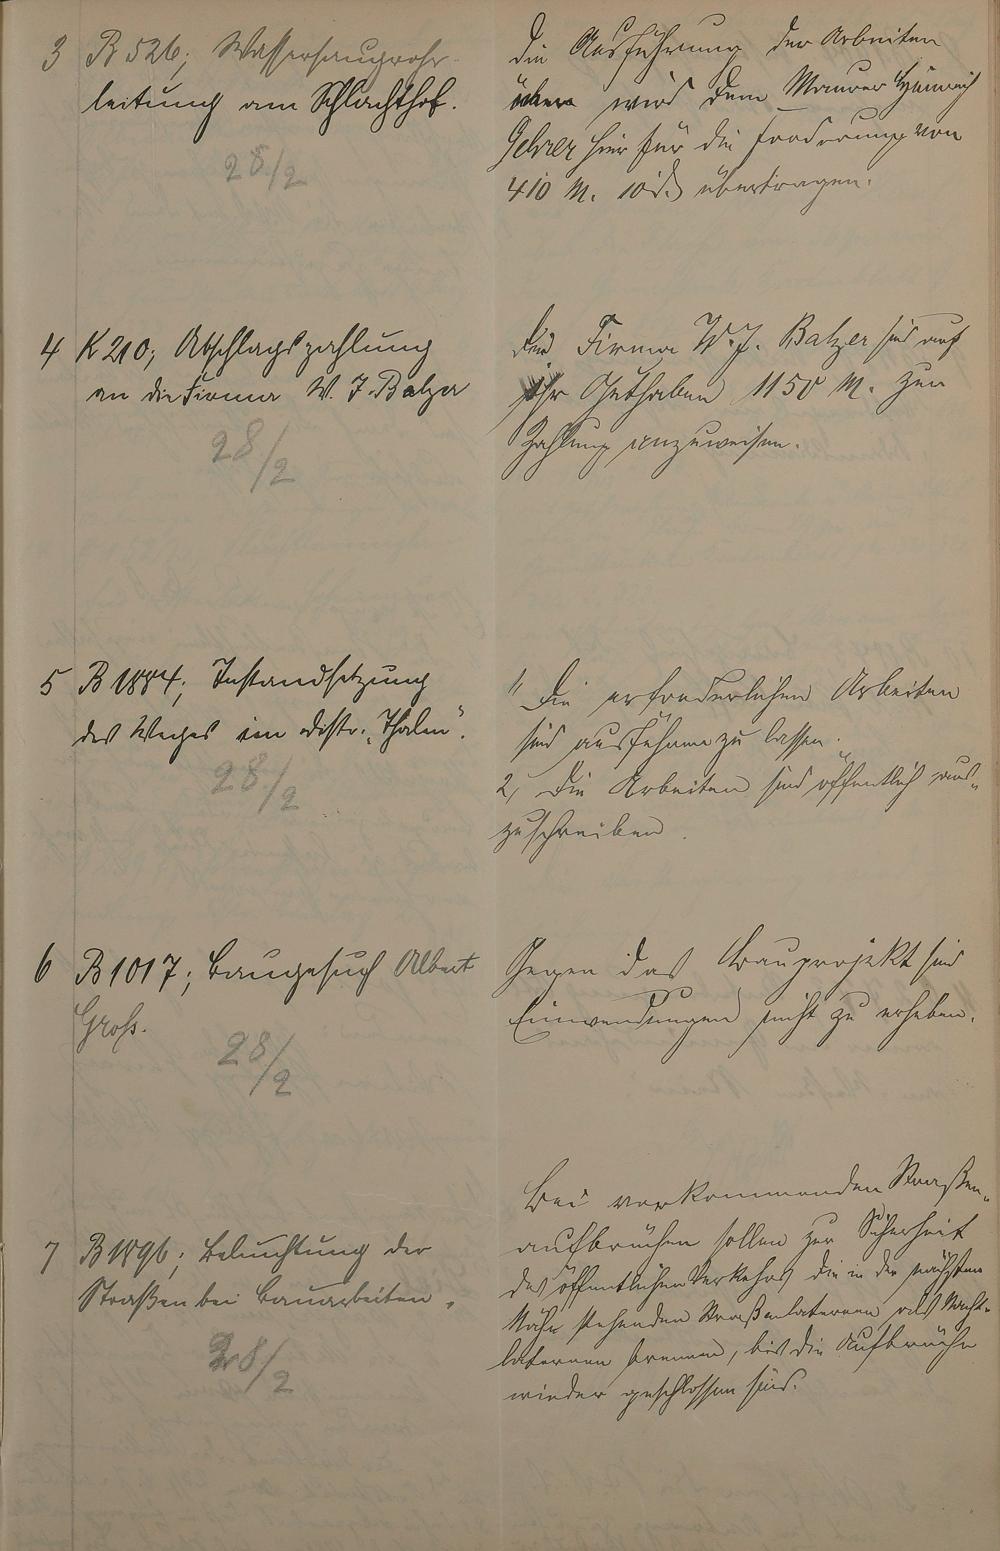 3 B 526; Wassersaugrohr-
leitung am Schlachthof.
28/2
Die Ausführung der Arbeiten
wird dem Maurer Heinrich
hier für die Forderung von
410 M. 10 d. übertragen.
4 K 210; Abschlagszahlung
an die Firma W. J. Balzer
28/2
Der Firma W. J. Balzer sind auf
ihr Guthaben 1150 M. zur
Zahlung anzuweisen.
5 B 1884; Instandsetzung
des Weges im Distr. „Thalen“.
28/2
1, Die erforderlichen Arbeiten
sind ausführen zu lassen.
2, Die Arbeiten sind öffentlich aus-
zuschreiben.
6 B 1017; Baugesuch Albert
Groß.
28/2
Gegen das Bauprojekt sind
Einwendungen nicht zu erheben.
7 B 1896; Beleuchtung der
Straßen bei Bauarbeiten.
28/2
Bei vorkommenden Straßen-
aufbrüchen sollen zur Sicherheit
des öffentlichen Verkehrs die in der nächsten
Nähe stehenden Straßenlaternen als Nacht-
laternen brennen, bis die Aufbrüche
wieder geschlossen sind.